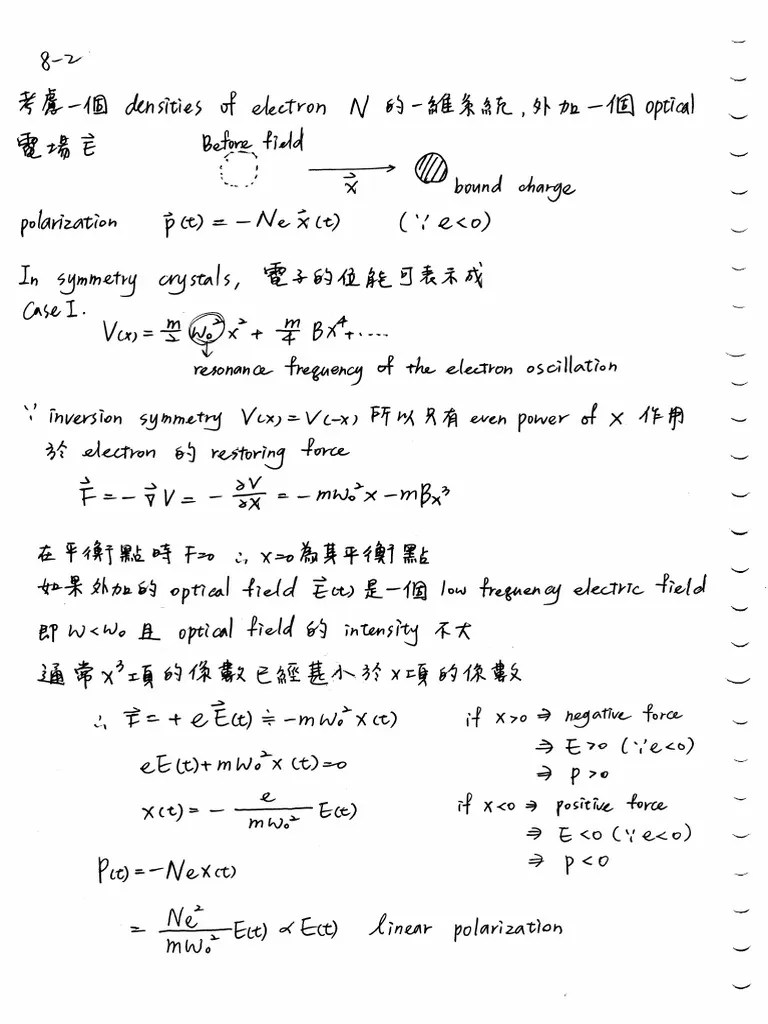 8-2
考慮一個 densities of electron N 的一維系統，外加一個 optical
電場 E⃗
Before field
x⃗
bound charge
polarization p⃗(t) = -Ne x⃗(t) (∵ e<0)
In symmetry crystals, 電子的位能可表示成
Case I.
V(x) = m/2 ω₀² x² + m/4 Bx⁴ + ....
resonance frequency of the electron oscillation
∵ inversion symmetry V(x) = V(-x) 所以只有 even power of x 作用
於 electron 的 restoring force
F⃗ = -∇⃗V = -∂V/∂x = -mω₀²x - mBx³
在平衡點時 F=0 ∴ x=0 為其平衡點
如果外加的 optical field E⃗(t) 是一個 low frequency electric field
即 ω<ω₀ 且 optical field 的 intensity 不大
通常 x³ 項的係數已經甚小於 x 項的係數
∴ F⃗ = +e E⃗(t) ≑ -mω₀²x(t)
eE(t) + mω₀²x(t) = 0
x(t) = - e/mω₀² E(t)
if x>0 ⇒ negative force
⇒ E>0 (∵ e<0)
⇒ p>0
if x<0 ⇒ positive force
⇒ E<0 (∵ e<0)
⇒ p<0
P(t) = -Nex(t)
= Ne²/mω₀² E(t) ∝ E(t) linear polarization